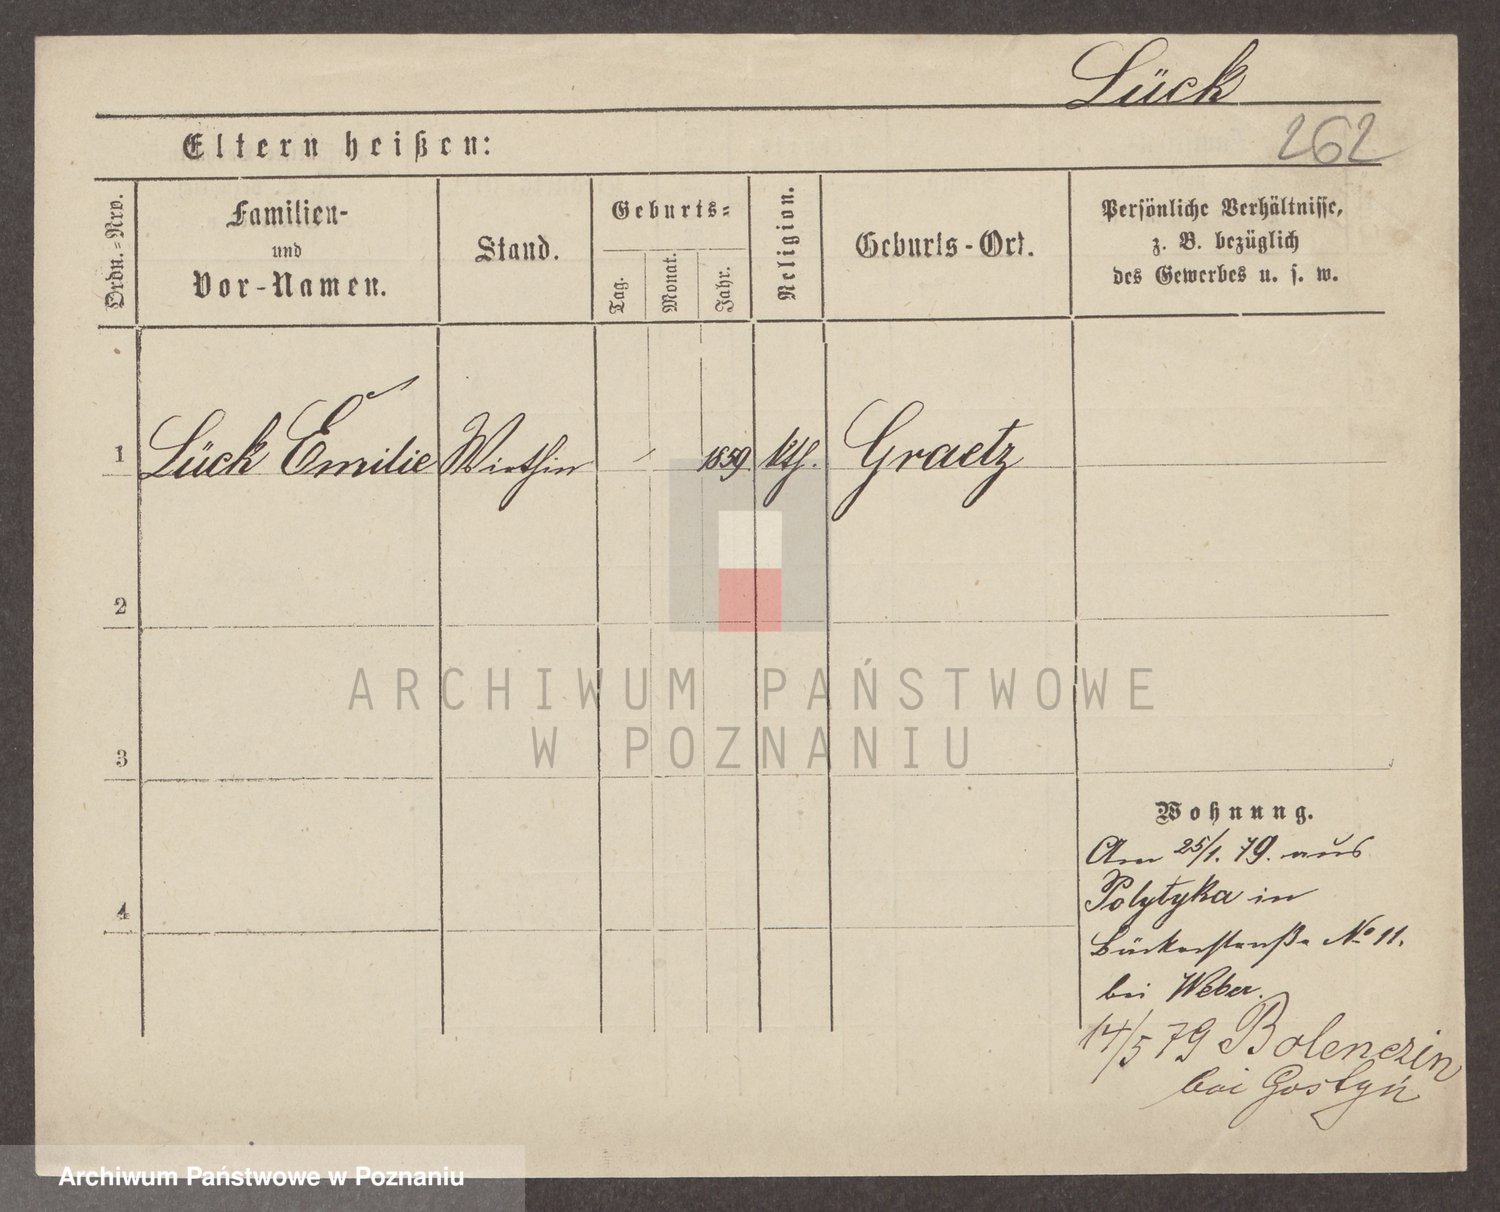 Lück
262
Eltern heißen:
Ordn.=Nro.
Familien-
und
Vor-Namen.
Stand.
Geburts=
Tag.
Monat.
Jahr.
Religion.
Geburts-Ort.
Persönliche Verhältnisse,
z. B. bezüglich
des Gewerbes u. s. w.
1 Lück Emilie Wirthin 1859 kth. Graetz
2
3
4
ARCHIWUM PAŃSTWOWE
W POZNANIU
Wohnung.
Am 25/1. 79. aus
Polytyka in
No 11.
bei Weber.
14/5 79 Bolenczin
bei Gostyń
Archiwum Państwowe w Poznaniu